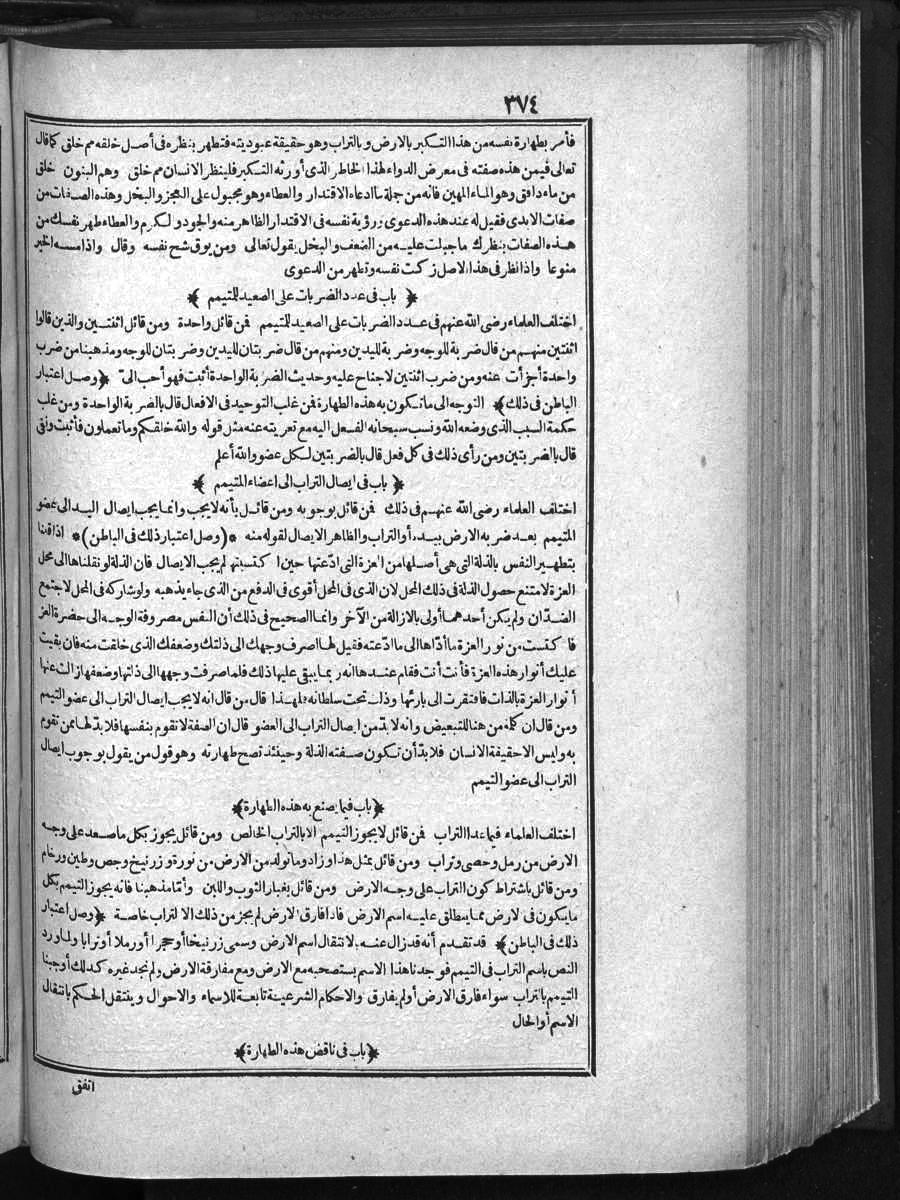 ٣٧٤
فأمر بطهارة نفسه من هذا التكبر بالارض وبالتراب وهو حقيقة عبوديته فتطهر بنظره فى أصل خلقه مم خلق كما قال
تعالى فيمن هذه صفته فى معرض الدواء لهذا الخاطر الذى أورثه التكبر فلينظر الانسان مم خلق وهم البنون خلق
من ماء دافق وهو الماء المهين فانه من جملة ما ادعاه الاقتدار والعطاء وهو مجبول على العجز والبخل وهذه الصفات من
صفات الايدى فقيل له عند هذه الدعوى ورؤية نفسه فى الاقتدار الظاهر منه والجود والكرم والعطاء طهر نفسك من
هذه الصفات بنظرك ما جبلت عليه من الضعف والبخل يقول تعالى ومن يوق شح نفسه وقال واذا مسه الخير
منوعا واذا نظر فى هذا الاصل زكت نفسه وتطهر من الدعوى
﴿ باب فى عدد الضربات على الصعيد للمتيمم ﴾
اختلف العلماء رضى الله عنهم فى عدد الضربات على الصعيد للمتيمم فمن قائل واحدة ومن قائل اثنتين والذين قالوا
اثنتين منهم من قال ضربة للوجه وضربة لليدين ومنهم من قال ضربتان لليدين وضربتان للوجه ومذهبنا من ضرب
واحدة أجزأت عنه ومن ضرب اثنتين لا جناح عليه وحديث الضربة الواحدة أثبت فهو أحب الىّ ﴿ وصل اعتبار
الباطن فى ذلك ﴾ التوجه الى ما تكون به هذه الطهارة فمن غلب التوحيد فى الافعال قال بالضربة الواحدة ومن غلب
حكمة السبب الذى وضعه الله ونسب سبحانه الفعل اليه مع تعريته عنه مثل قوله والله خلقكم وما تعملون فأثبت ونفى
قال بالضربتين ومن رأى ذلك فى كل فعل قال بالضربتين لكل عضو والله أعلم
﴿ باب فى ايصال التراب الى اعضاء المتيمم ﴾
اختلف العلماء رضى الله عنهم فى ذلك فمن قائل بوجوبه ومن قائل بأنه لا يجب وانما يجب ايصال اليد الى عضو
المتيمم بعد ضربه الارض بيده أو التراب والظاهر الايصال لقوله منه *(وصل اعتبار ذلك فى الباطن)* اذا قلنا
بتطهير النفس بالذلة التى هى أصلها من العزة التى ادّعتها حين اكتسبتها لم يجب الايصال فان الذلة لو نقلناها الى محل
العزة لامتنع حصول الذلة فى ذلك المحل لان الذى فى المحل أقوى فى الدفع من الذى جاء يذهبه ولو شاركه فى المحل لاجتمع
الضدّان ولم يكن أحدهما أولى بالازالة من الآخر وانما الصحيح فى ذلك أن النفس مصروفة الوجه الى حضرة العز
فاكتست من نور العزة ما أدّاها الى ما ادّعته فقيل لها اصرف وجهك الى ذلتك وضعفك الذى خلقت منه فان بقيت
عليك أنوار هذه العزة فأنت أنت فقام عندها انه ربما يبقى عليها ذلك فلما صرفت وجهها الى ذلتها وضعفها زالت عنها
أنوار العزة بالذات فافتقرت الى بارئها وذلت تحت سلطانه فلهذا قال من قال انه لا يجب ايصال التراب الى عضو التيمم
ومن قال ان كلمة من هنا للتبعيض وانه لا بدّ من ايصال التراب الى العضو قال ان الصفة لا تقوم بنفسها فلا بدّ لها ممن تقوم
به وليس الا حقيقة الانسان فلا بدّ أن تكون صفته الذلة وحينئذ تصح طهارته وهو قول من يقول بوجوب ايصال
التراب الى عضو التيمم
﴿ باب فيما يصنع به هذه الطهارة ﴾
اختلف العلماء فيما عدا التراب فمن قائل لا يجوز التيمم الا بالتراب الخالص ومن قائل يجوز بكل ما صعد على وجه
الارض من رمل وحصى وتراب ومن قائل بمثل هذا وزاد وما تولد من الارض من نورة وزرنيخ وجص وطين ورخام
ومن قائل باشتراط كون التراب على وجه الارض ومن قائل بغبار الثوب واللبن وأما مذهبنا فانه يجوز التيمم بكل
ما يكون فى الارض مما ينطلق عليه اسم الارض فاذا فارق الارض لم يجز من ذلك الا التراب خاصة ﴿ وصل اعتبار
ذلك فى الباطن ﴾ قد تقدم أنه قد زال عنه بالانتقال اسم الارض وسمى زرنيخا أو حجرا أو رملا أو ترابا ولما ورد
النص باسم التراب فى التيمم فوجدنا هذا الاسم يستصحبه مع الارض ومع مفارقة الارض ولم نجد غيره كذلك أوجبنا
التيمم بالتراب سواء فارق الارض أو لم يفارق والاحكام الشرعية تابعة للاسماء والاحوال وينتقل الحكم بانتقال
الاسم أو الحال
﴿ باب فى ناقض هذه الطهارة ﴾
اتفق